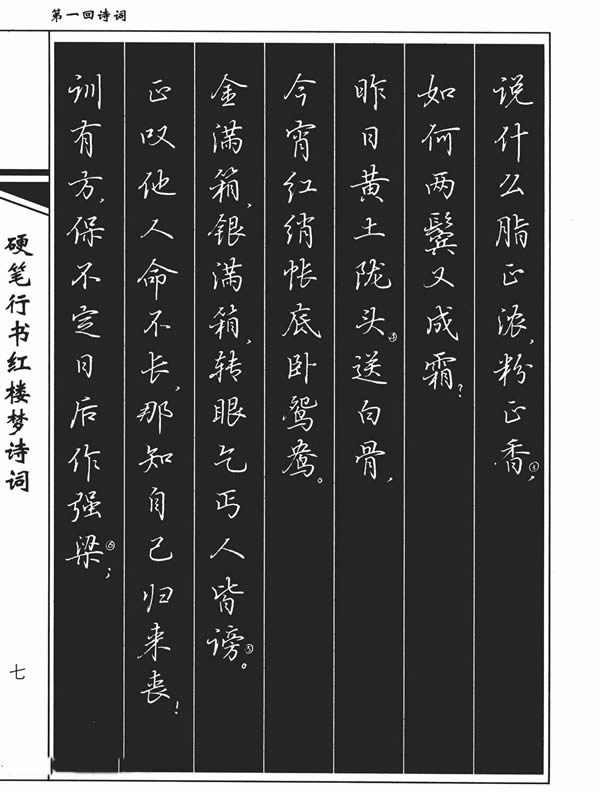 第一回诗词
说什么脂正浓,粉正香④,
如何两鬓又成霜?
昨日黄土陇头⑤送白骨,
今宵红绡帐底卧鸳鸯。
金满箱,银满箱,转眼乞丐人皆谤⑤。
正叹他人命不长,那知自己归来丧!
训有方,保不定日后作强梁⑥;
硬笔行书红楼梦诗词
七